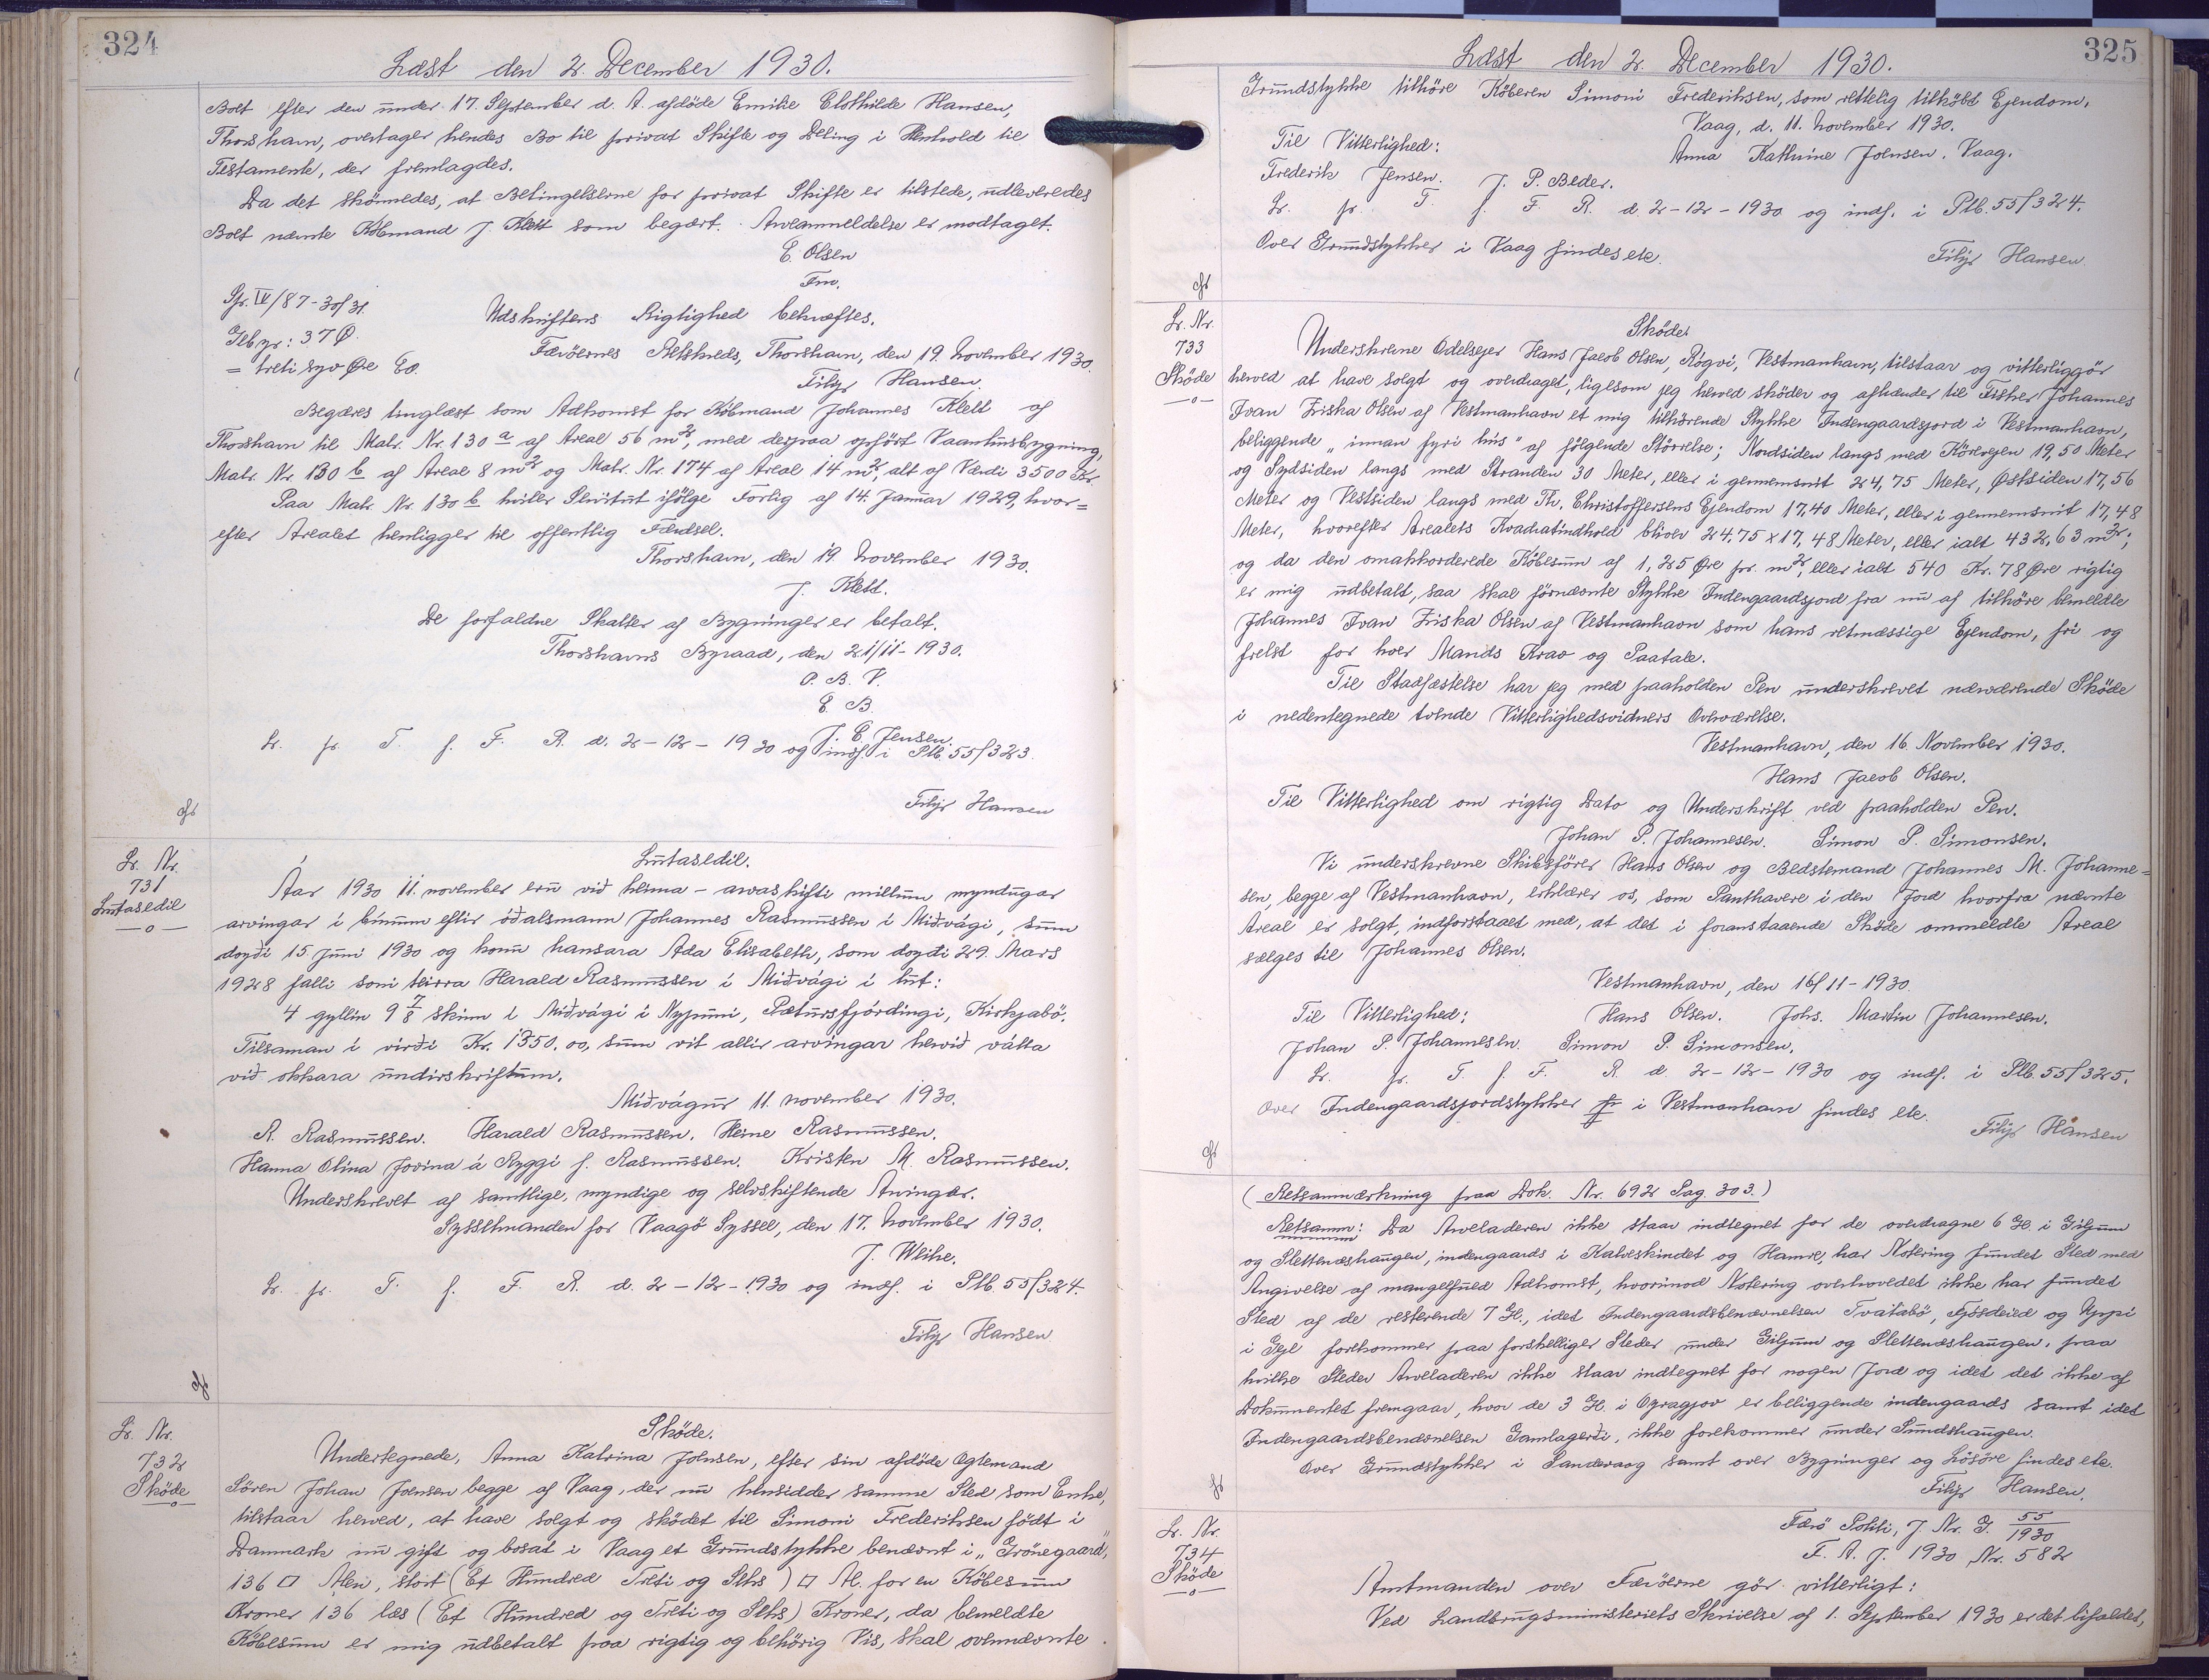 324
Læst den 2. December 1930.
Boet efter den under 17. September d. A. afdöde Emilie Clothilde Hansen,
Thorshavn, overtager hendes Bo til privat Skifte og Deling i Henhold til
Testamente, der fremlagdes.
Da det skönnedes, at Betingelserne for privat Skifte er tilstede, udleveredes
Boet nævnte Köbmand J. Klett som begært. Arveanmeldelse er modtaget.
E. Olsen
Fm.
Sp. IV/87-30/31.
Udskriftens Rigtighed bekræftes.
Gebyr: 37 Ø.
Færöernes Retskreds, Thorshavn, den 19. November 1930.
= treti syv Øre Eo.
Filip Hansen.
Begæres tinglæst som Adkomst for Köbmand Johannes Klett af
Thorshavn til Matr. Nr. 130 a af Areal 56 m², med derpaa opfört Vaanhusbygning,
Matr. Nr. 130 b af Areal 8 m² og Matr. Nr. 174 af Areal 14 m², alt af Værdi 3500 Kr.
Paa Matr. Nr. 130 b hviler Servitut ifölge Forlig af 14. Januar 1929, hvor=
efter Arealet henligger til offentlig Færdsel.
Thorshavn, den 19. November 1930.
J. Klett.
De forfaldne Skatter af Bygninger er betalt.
Thorshavns Byraad, den 21/11-1930.
P. B. V.
E. B.
J. C. Jensen.
Lr. pr. T. f. F. R. d. 2-12-1930 og indf. i Ptb. 55/323.
Filip Hansen
Lr. Nr.
731
Lutasedil
Lutasedil.
Áar 1930 11. november eru við heima-arvaskifti millum myndugar
arvingar í búnum eftir óðalsmann Johannes Rasmussen í Miðvági, sum
doyði 15. juni 1930 og konu hansara Ada Elisabeth, som doyði 29. Mars
1928 falli soni teirra Harald Rasmussen í Miðvági í lut:
4 gyllin 9 7/8 skinn í Miðvági í Nyþuni, Pætursfjórdingi, Kirkjabö.
Tilsaman í virði Kr. 1350.00, sum vit allir arvingar hervið vátta
við okkara undirskriftum.
Miðvágur 11. november 1930.
R. Rasmussen. Harald Rasmussen. Heine Rasmussen.
Hanna Olina Jovina á Ryggi f. Rasmussen. Kristen M. Rasmussen.
Underskrevet af samtlige, myndige og selvskiftende Arvingar.
Sysselmanden for Vaagö Syssel, den 17. November 1930.
J. Weihe.
Lr. pr. T. f. F. R. d. 2-12-1930 og indf. i Ptb. 55/324.
Filip Hansen
Lr. Nr.
732
Sköde
Sköde.
Undertegnede, Anna Katrina Joensen, efter sin afdöde Ægtemand
Sören Johan Joensen begge af Vaag, der nu hensidder samme Sted som Enke,
tilstaar herved, at have solgt og sködet til Simoni Frederiksen födt i
Danmark nu gift og bosat i Vaag et Grundstykke benævnt i „Grönegaard",
136 □ Alen, stort (Et Hundred Treti og Seks) □ Al. for en Köbesum
Kroner 136 læs (Et Hundred og Treti og Seks) Kroner, da bemeldte
Köbesum er mig udbetalt paa rigtig og behörig Vis, skal ovennævnte
325
Læst den 2. December 1930.
Grundstykke tilhöre Köberen Simoni Frederiksen, som rettelig tilköbt Ejendom.
Vaag, d. 11. November 1930.
Til Vitterlighed:
Anna Kathrine Joensen. Vaag.
Frederik Jensen. J. P. Beder.
Lr. pr. T. f. F. R. d. 2-12-1930 og indf. i Ptb. 55/324.
Over Grundstykker i Vaag findes etc.
Filip Hansen.
Lr. Nr.
733
Sköde
Sköde.
Underskrevne Odelsejer Hans Jacob Olsen, Rógvi, Vestmanhavn, tilstaar og vitterliggör
herved at have solgt og overdraget, ligesom jeg herved sköder og afhænder til Fisker Johannes
Ivan Ziska Olsen af Vestmanhavn et mig tilhörende Stykke Indengaardsjord i Vestmanhavn,
beliggende „innan fyri hús" af fölgende Störrelse; Nordsiden langs med Körevejen 19,50 Meter
og Sydsiden langs med Stranden 30 Meter, eller i gennemsnit 24,75 Meter, Østsiden 17,56
Meter og Vestsiden langs med Th. Christoffersens Ejendom 17,40 Meter, eller i gennemsnit 17,48
Meter, hvorefter Arealets Kvadratindhold bliver 24,75 x 17,48 Meter, eller ialt 432,63 m²;
og da den omakkorderede Köbesum af 1,25 Øre pr. m², eller ialt 540 Kr. 78 Øre rigtig
er mig udbetalt, saa skal förnævnte Stykke Indengaardsjord fra nu af tilhöre bemeldte
Johannes Ivan Ziska Olsen af Vestmanhavn som hans retmæssige Ejendom, fri og
frelst for hver Mands Krav og Paatale.
Til Stadfæstelse har jeg med paaholden Pen underskrevet nærværende Sköde
i nedentegnede tvende Vitterlighedsvidners Overværelse.
Vestmanhavn, den 16. November 1930.
Hans Jacob Olsen.
Til Vitterlighed om rigtig Dato og Underskrift ved paaholden Pen.
Johan P. Johannesen. Simon P. Simonsen.
Vi underskrevne Skibsförer Hans Olsen og Bedstemand Johannes M. Johanne=
sen, begge af Vestmanhavn, erklærer os, som Panthavere i den Jord hvorfra nævnte
Areal er solgt, indforstaaet med, at det i foranstaaende Sköde ommeldte Areal
sælges til Johannes Olsen.
Vestmanhavn, den 16/11-1930.
Til Vitterlighed: Hans Olsen. Johs. Martin Johannesen.
Johan P. Johannesen. Simon P. Simonsen.
Lr. pr. T. f. F. R. d. 2-12-1930 og indf. i Ptb. 55/325.
Over Indengaardsjordstykker i Vestmanhavn findes etc.
Filip Hansen
(Retsanmærkning paa Dok. Nr. 692 Pag. 303.)
Retsanm: Da Arveladeren ikke staar indtegnet for de overdragne 6 Gl. i Giljum
og Slettenæshaugen, indengaards i Kalveskindet og Hamre, har Notering fundet Sted med
Angivelse af mangelfuld Adkomst, hvorimod Notering overhovedet ikke har fundet
Sted af de resterende 7 Gl., idet Indengaardsbenævnelsen Tvatabö, Fjósdeild og Uppi
i Gejl forekommer paa forskelliger Steder under Giljum og Slettenæshaugen, paa
hvilke Steder Arveladeren ikke staar indtegnet for nogen Jord og idet det ikke af
Dokumentet fremgaar, hvor de 3 Gl. i Ogragjov er beliggende indengaards samt idet
Indengaardsbenævnelsen Gamlagerði, ikke forekommer under Sundshaugen.
Over Grundstykker i Sandevaag samt over Bygninger og Lösöre findes etc.
Filip Hansen.
Lr. Nr.
734
Sköde
Færö Politi, J. Nr. G. 55/1930
F. A. J. 1930 Nr. 582
Amtmanden over Færöerne gör vitterligt:
Ved Landbrugsministeriets Skrivelse af 1. September 1930 er det bifaldet,